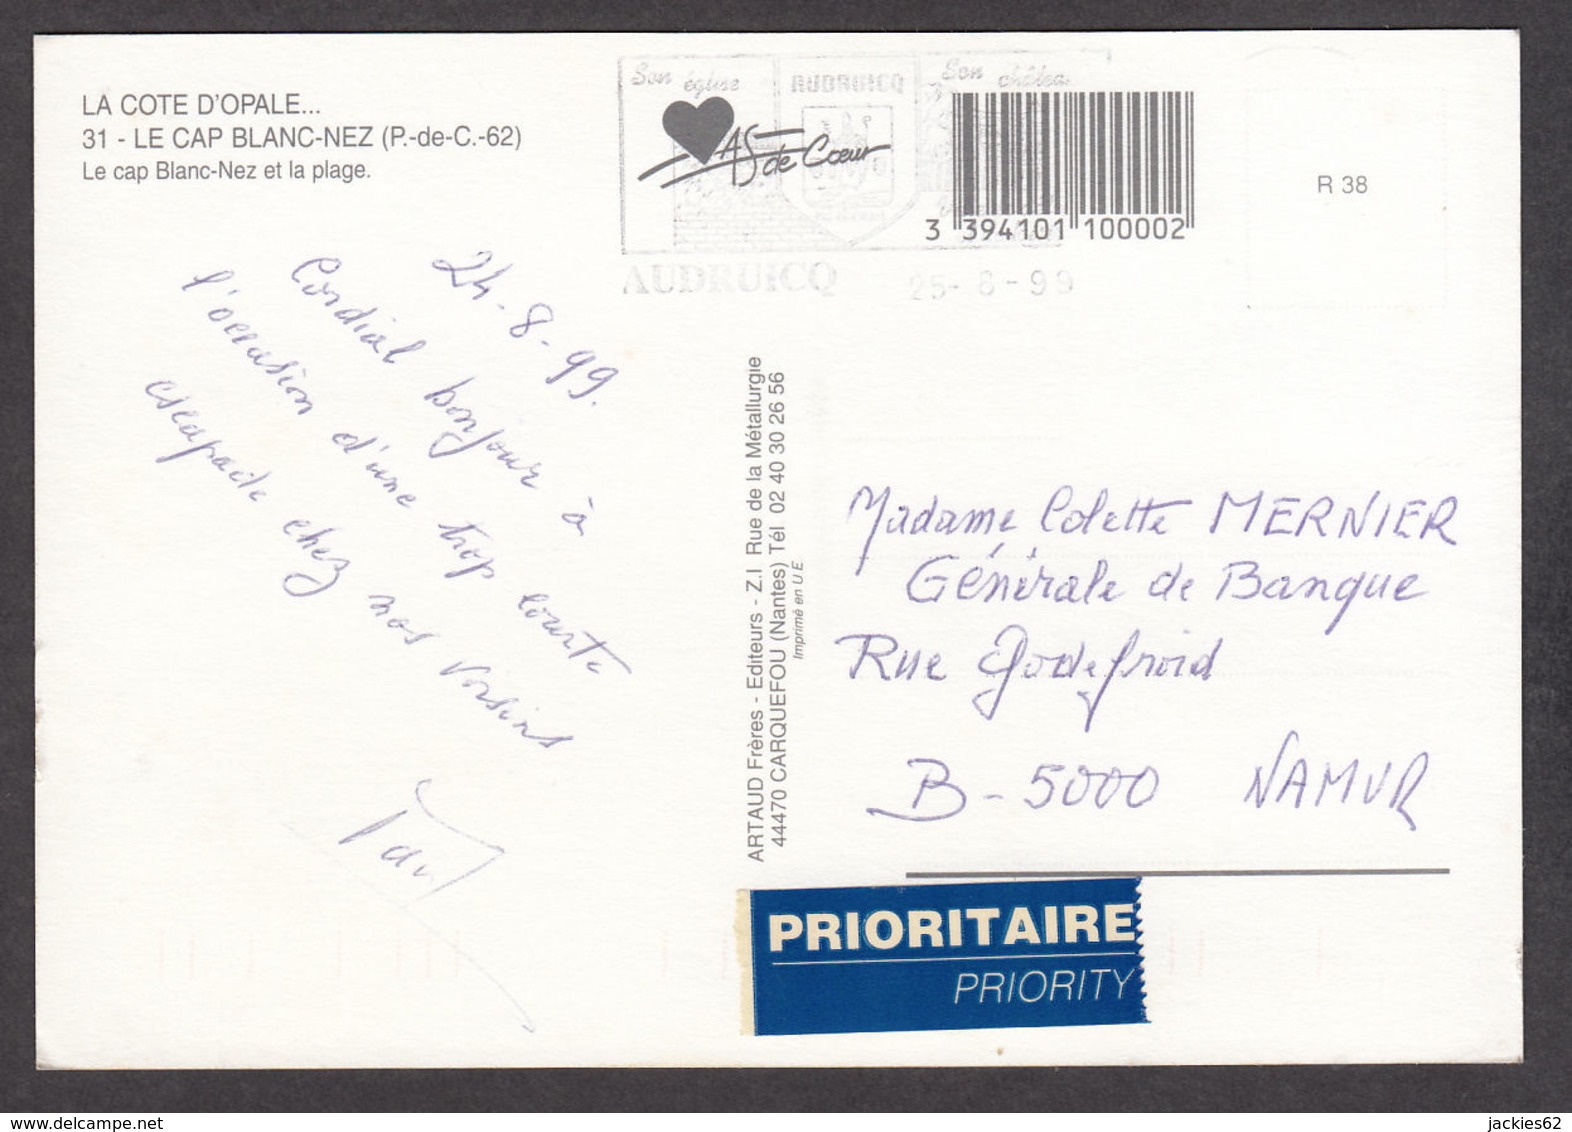 LA COTE D'OPALE...
31 - LE CAP BLANC-NEZ (P.-de-C.-62)
Le cap Blanc-Nez et la plage.
Son église
AUDRUICQ
Son
As de Cœur
AUDRUICQ
25-8-99
3 394101 100002
R 38
24-8-99.
Cordial bonjour à
l'occasion d'une trop courte
escapade chez nos voisins
ARTAUD Frères - Editeurs - Z.I Rue de la Métallurgie
44470 CARQUEFOU (Nantes) Tél 02 40 30 26 56
Imprimé en U E
Madame Colette MERNIER
Générale de Banque
Rue Godefroid
B-5000 NAMUR
PRIORITAIRE
PRIORITY
delcampe.net
jackies62